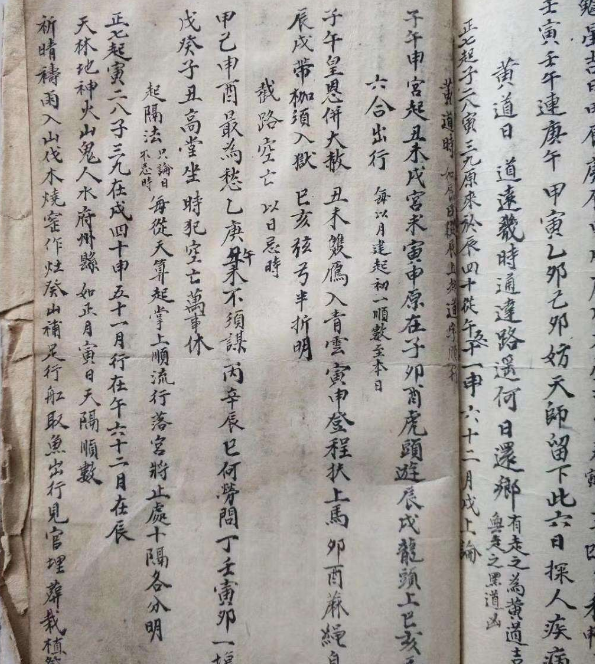 壬寅壬午連庚午 甲寅乙卯己卯妨天師留下此六日探人疾病
黃道日 道遠幾時通達路遥何日還鄉 有走之為黃道吉 無走之黑道凶
正七起子二八寅三九原來於辰四十從午五十一申六十二月戌上論
黃道時
子午申宮起丑未戌宮求寅申原在子卯酉虎頭遊辰戌龍頭上巳亥
六合出行 每以月建起初一順數至本日
子午皇恩併大赦 丑未雙鴈入青雲寅申登程扶上馬卯酉麻繩
辰戌帶枷須入獄 巳亥弦弓半折明
截路空亡 以日忌時
甲己申酉最為愁乙庚午未不須謀丙辛辰巳何勞問丁壬寅卯一
戊癸子丑高堂坐 時犯空亡萬事休
起隔法 只論日不忌時 每從天算起掌上順流行落宮將止處十隔各分明
正七起寅二八子三九在戌四十申五十一月行在午六十二月在辰
天林地神火山鬼人水府州縣 如正月寅日天隔順數
祈晴禱雨入山伐木燒窑作灶癸山補足行船取魚出行見官埋葬栽植